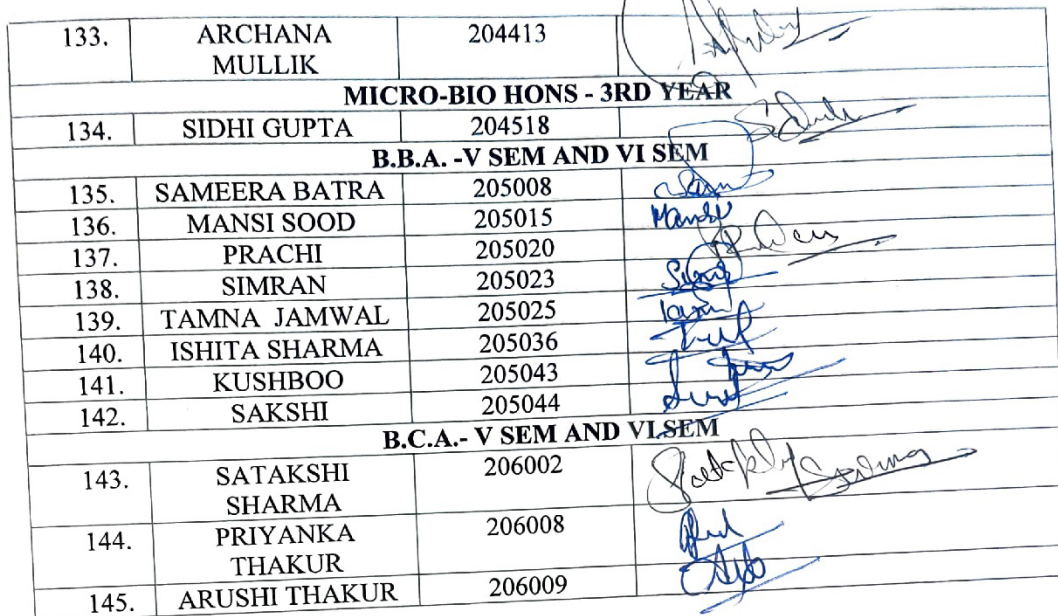 133. ARCHANA MULLIK 204413
MICRO-BIO HONS - 3RD YEAR
134. SIDHI GUPTA 204518
B.B.A. -V SEM AND VI SEM
135. SAMEERA BATRA 205008
136. MANSI SOOD 205015 Mansi
137. PRACHI 205020
138. SIMRAN 205023
139. TAMNA JAMWAL 205025
140. ISHITA SHARMA 205036
141. KUSHBOO 205043
142. SAKSHI 205044
B.C.A.- V SEM AND VI SEM
143. SATAKSHI SHARMA 206002
144. PRIYANKA THAKUR 206008
145. ARUSHI THAKUR 206009